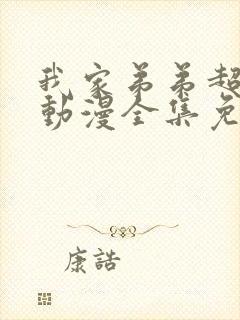 我家弟弟超
動漫全集免
康誥